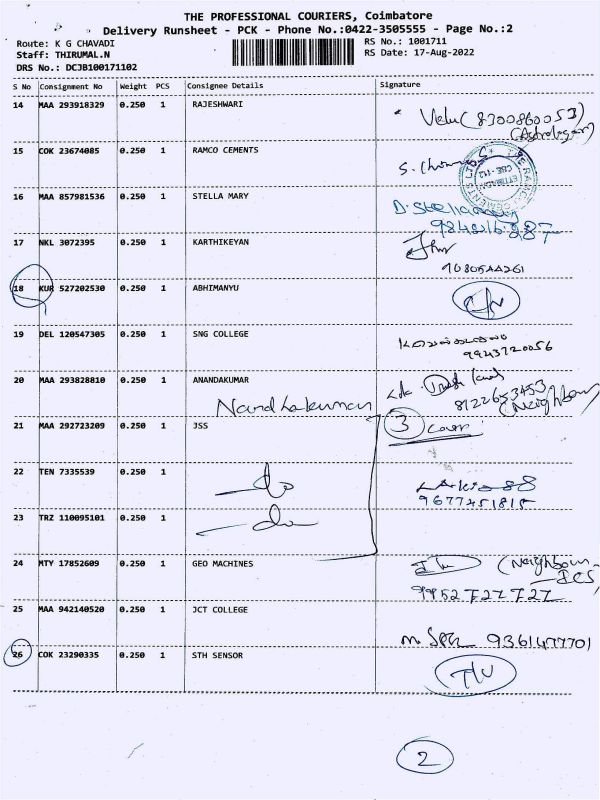 THE PROFESSIONAL COURIERS, Coimbatore
Delivery Runsheet - PCK - Phone No.:0422-3505555 - Page No.:2
Route: K G CHAVADI
RS No.: 1001711
Staff: THIRUMAL.N
RS Date: 17-Aug-2022
DRS No.: DCJB100171102
S No Consignment No Weight PCS Consignee Details Signature
14 MAA 293918329 0.250 1 RAJESHWARI
Velu (8300860053)
(Astrologar)
15 COK 23674085 0.250 1 RAMCO CEMENTS
16 MAA 857981536 0.250 1 STELLA MARY
17 NKL 3072395 0.250 1 KARTHIKEYAN
9080544261
18 KUR 527202530 0.250 1 ABHIMANYU
19 DEL 120547305 0.250 1 SNG COLLEGE
9943720056
20 MAA 293828810 0.250 1 ANANDAKUMAR
8122653453
(Neighbour)
Nandhakumar
21 MAA 292723209 0.250 1 JSS
3 cover
22 TEN 7335539 0.250 1 do
9677451815
23 TRZ 110095101 0.250 1 do
24 MTY 17852609 0.250 1 GEO MACHINES
(Neighbour
9952727727
25 MAA 942140520 0.250 1 JCT COLLEGE
9361477701
26 COK 23290335 0.250 1 STH SENSOR
2